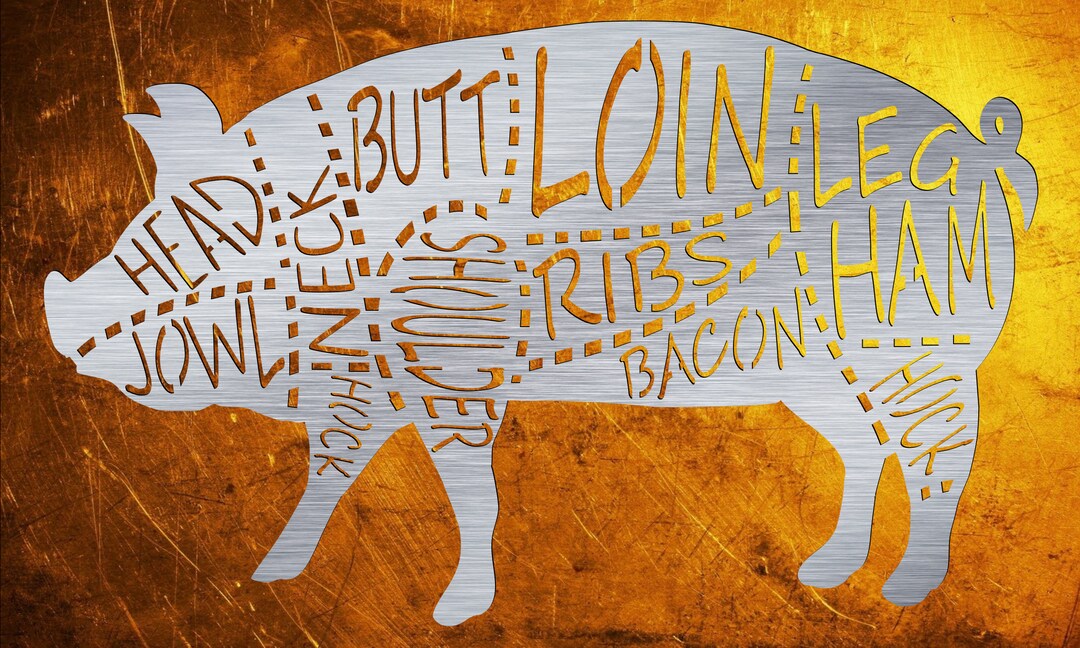 HEAD
JOWL
NECK
BUTT
SHOULDER
HOCK
LOIN
RIBS
BACON
LEG
HAM
HOCK